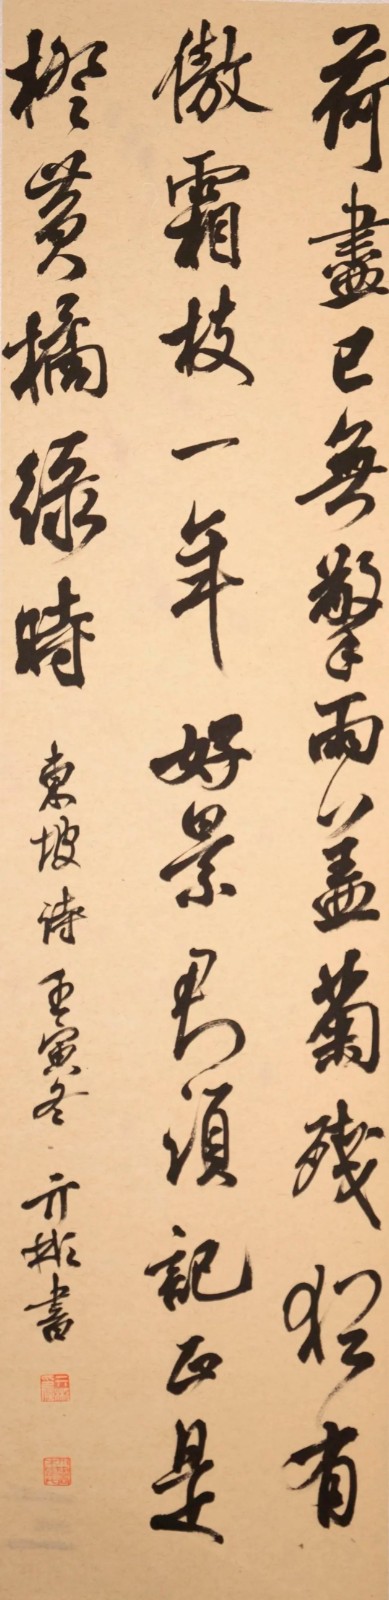 荷盡已無擎雨蓋菊殘猶有
傲霜枝一年好景君須記正是
橙黃橘綠時
東坡詩 壬寅冬 亓彬書